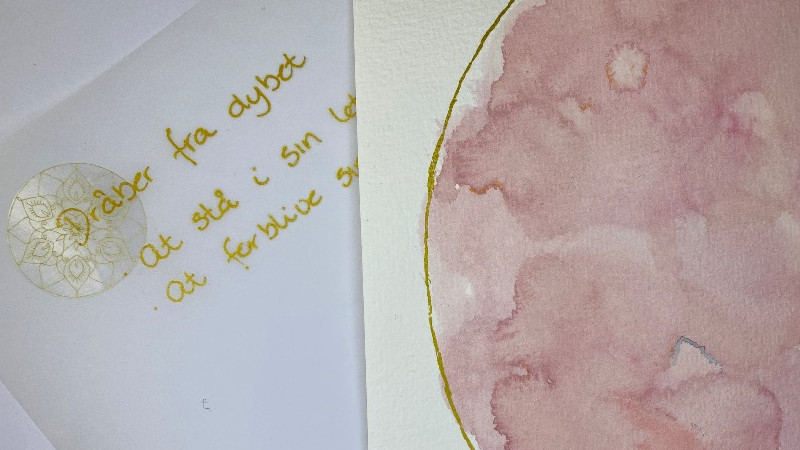 Dråber fra dybet
· At stå i sin let
· At forblive sin